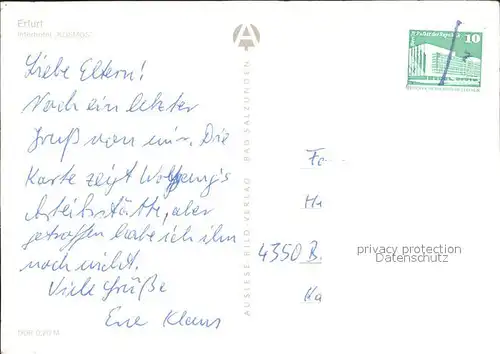 Erfurt
Interhotel "KOSMOS"
Liebe Eltern!
Noch ein letzter
Gruß von mir. Die
Karte zeigt Wolfgang's
Arbeitsstätte, aber
getroffen habe ich ihn
noch nicht.
Viele Grüße
Eue Klaus
AUSLESE-BILD-VERLAG BAD SALZUNGEN
10
Fa
4350 B.
privacy protection
Datenschutz